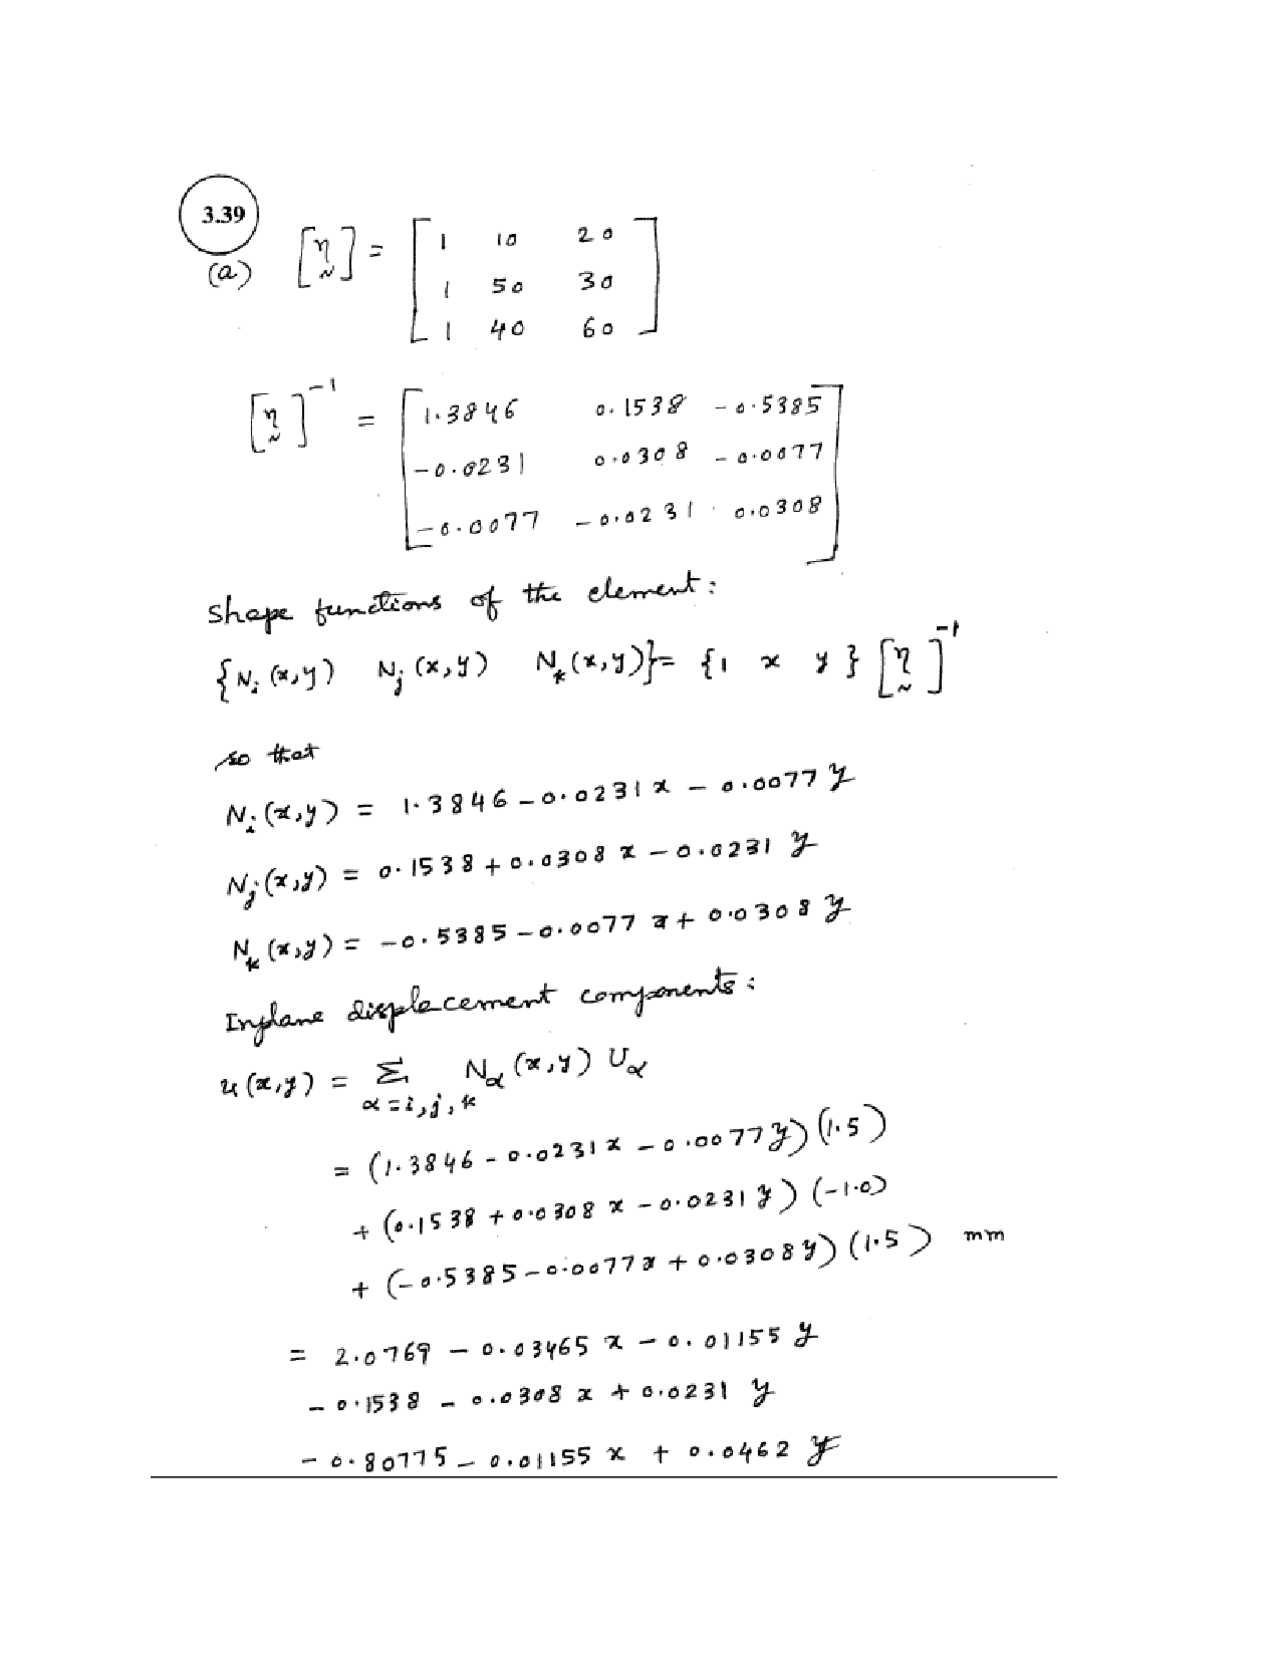 3.39
(a) [η] = [1 10 20
1 50 30
1 40 60]
[η]⁻¹ = [1.3846 0.1538 -0.5385
-0.0231 0.0308 -0.0077
-0.0077 -0.0231 0.0308]
shape functions of the element:
{Nᵢ(x,y) Nⱼ(x,y) Nₖ(x,y)} = {1 x y} [η]⁻¹
so that
Nᵢ(x,y) = 1.3846 - 0.0231 x - 0.0077 y
Nⱼ(x,y) = 0.1538 + 0.0308 x - 0.0231 y
Nₖ(x,y) = -0.5385 - 0.0077 x + 0.0308 y
Inplane displacement components:
u(x,y) = Σ Nα(x,y) Uα
α = i, j, k
= (1.3846 - 0.0231 x - 0.0077 y) (1.5)
+ (0.1538 + 0.0308 x - 0.0231 y) (-1.0)
+ (-0.5385 - 0.0077 x + 0.0308 y) (1.5) mm
= 2.0769 - 0.03465 x - 0.01155 y
- 0.1538 - 0.0308 x + 0.0231 y
- 0.80775 - 0.01155 x + 0.0462 y